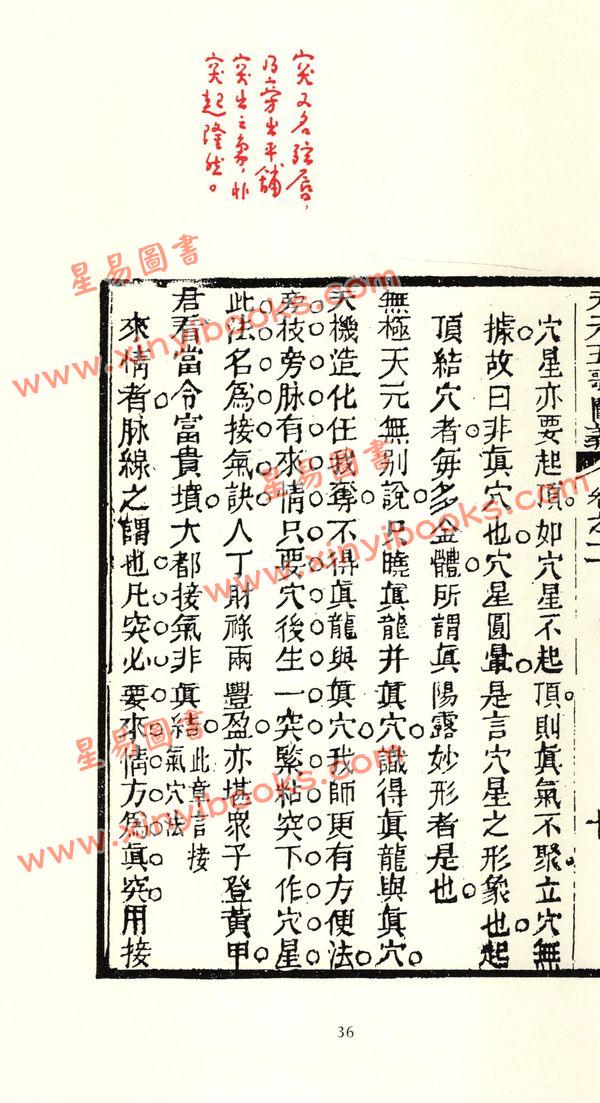 突又名弦唇，
乃旁出平鋪
突出之象，非
突起隆然。
天元五歌闡義
卷之二
十
穴星亦要起頂。如穴星不起頂。則眞氣不聚。立穴無
據。故曰非眞穴也。穴星圓暈。是言穴星之形象也。起
頂結穴者。每多金體。所謂眞陽露妙形者是也。
無極天元無別說。只曉眞龍并眞穴。識得眞龍與眞穴。
天機造化任我奪。不得眞龍與眞穴。我師更有方便法。
旁枝旁脉有來情。只要穴後生一突。緊粘突下作穴星。
此法名爲接氣訣。人丁財祿兩豐盈。亦堪衆子登黃甲。
君看當令富貴墳。大都接氣非眞結。
此章言接
氣穴法
來情者。脉線之謂也。凡突必要來情。方爲眞突。用接
36
星易圖書
www.xinyibooks.com
星易圖書
www.xinyibooks.com
星易圖書
www.xinyibooks.com